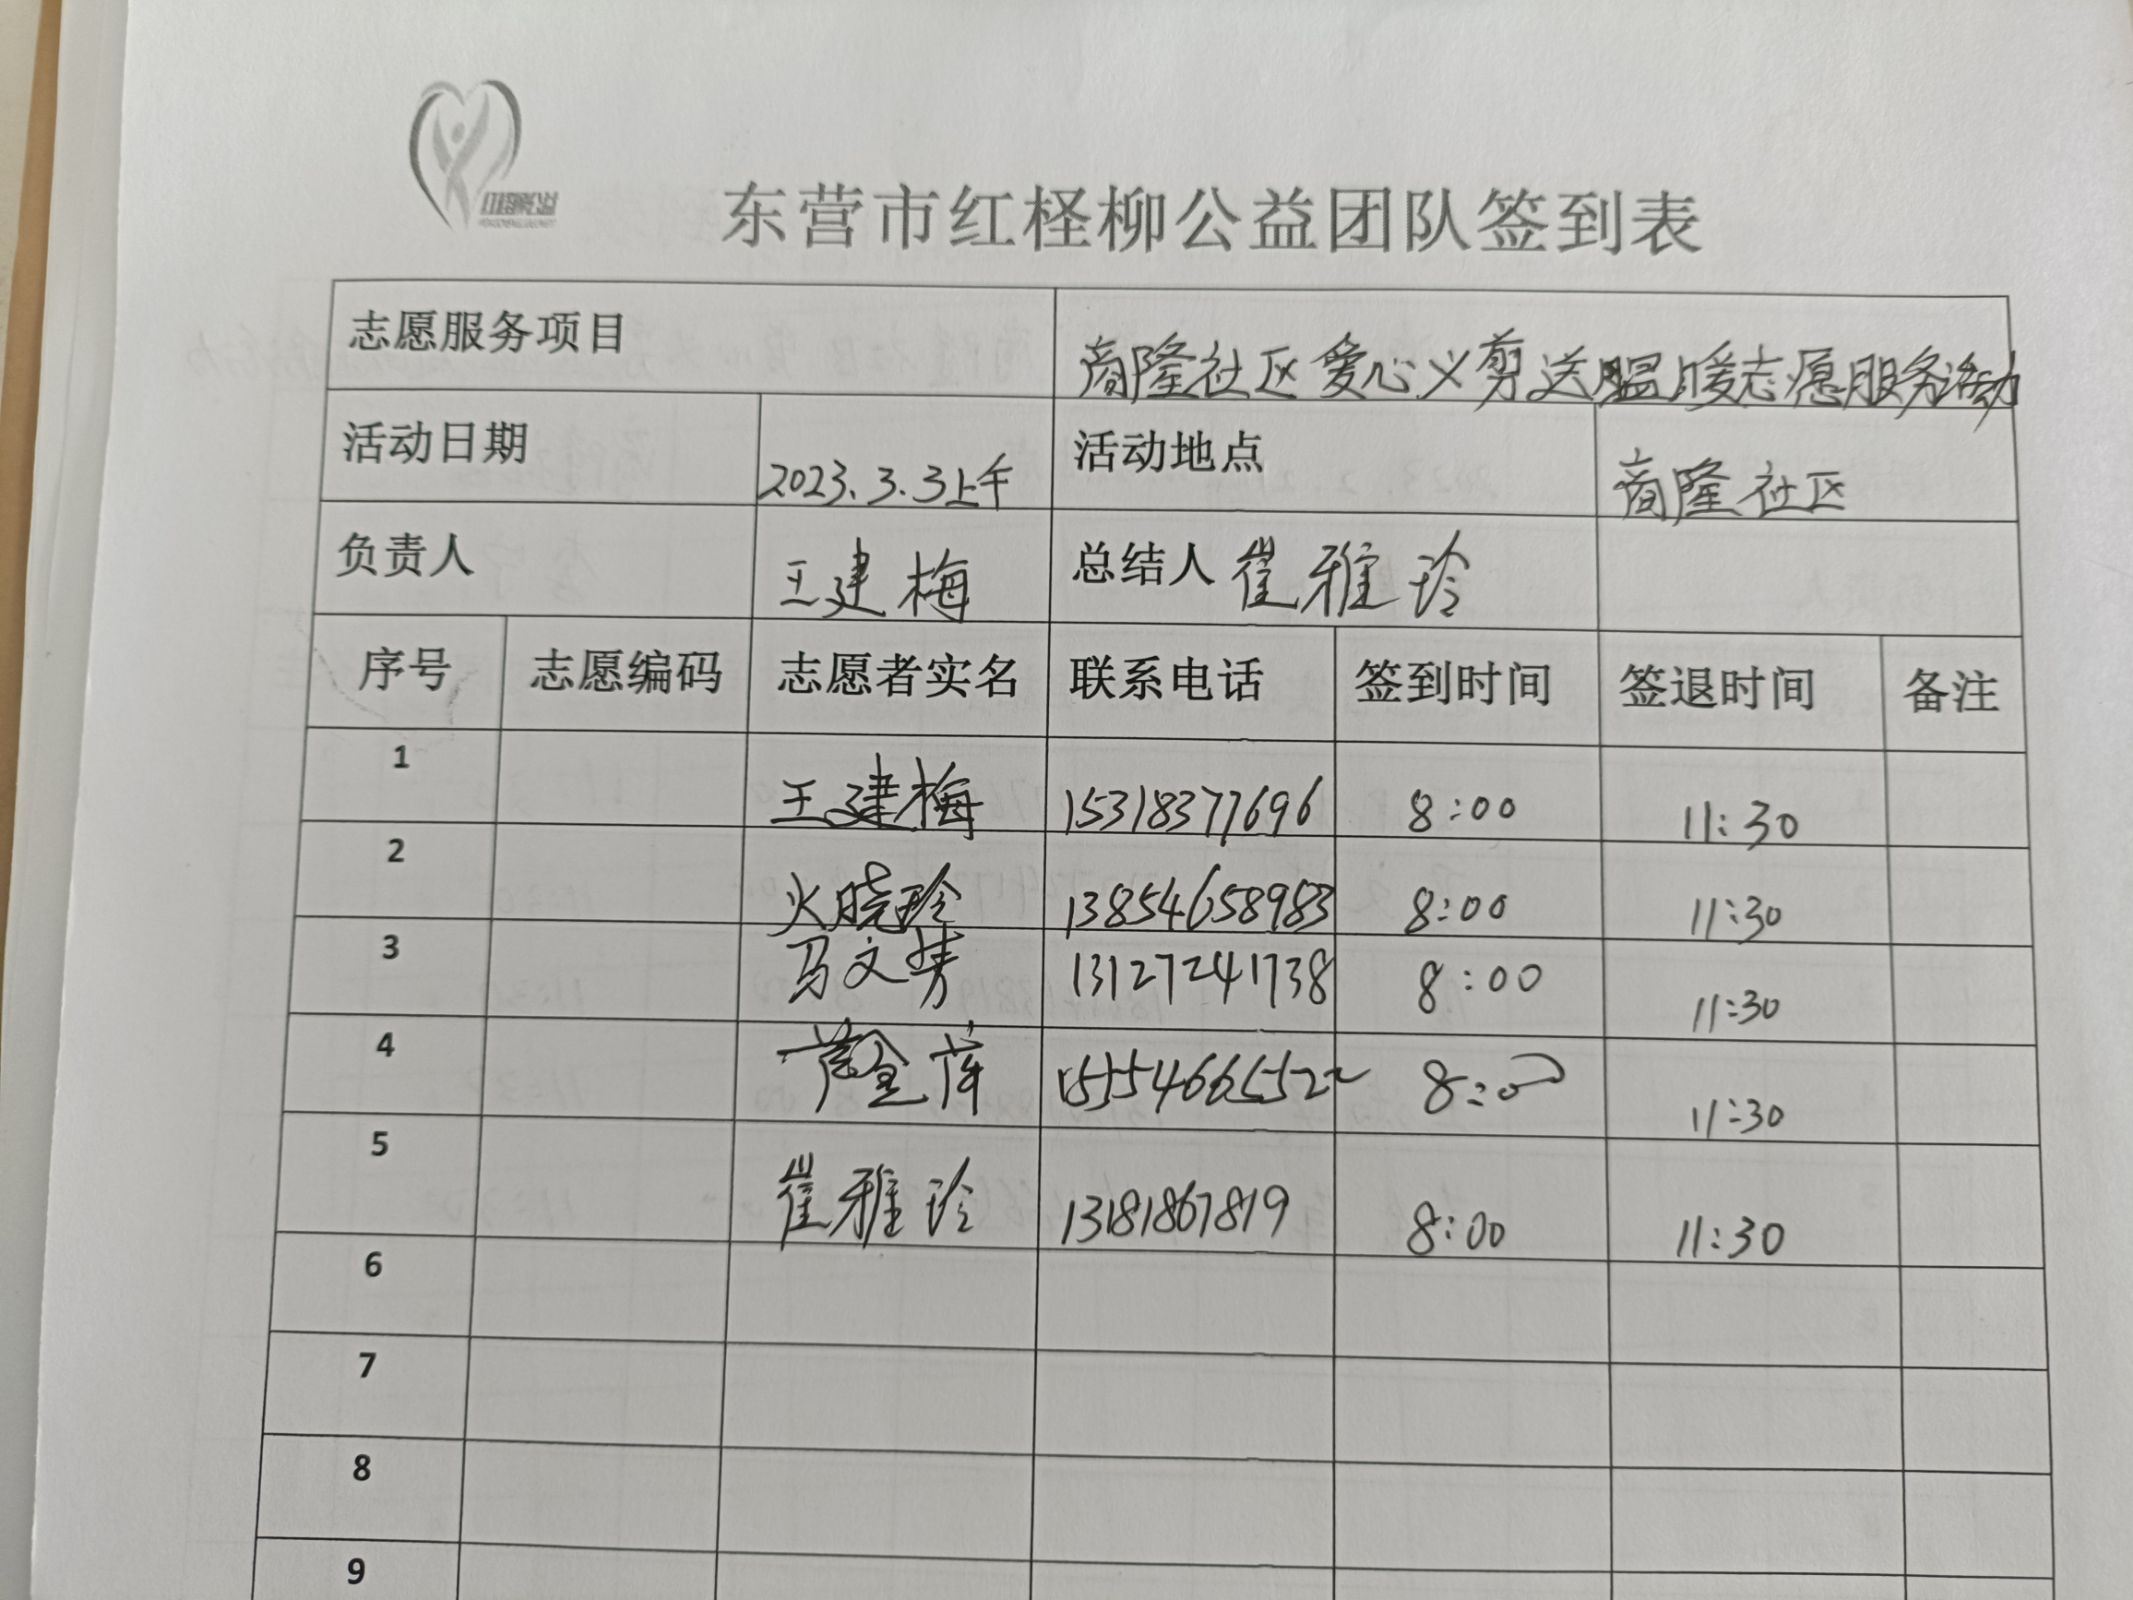 东营市红柽柳公益团队签到表
志愿服务项目 商隆社区爱心义剪送温暖志愿服务活动
活动日期 2023.3.3上午 活动地点 商隆社区
负责人 王建梅 总结人 崔雅玲
序号 志愿编码 志愿者实名 联系电话 签到时间 签退时间 备注
1 王建梅 15318377696 8:00 11:30
2 火晓玲 13854658983 8:00 11:30
3 马文芳 13127241738 8:00 11:30
4 15554665522 8:00 11:30
5 崔雅玲 13181867819 8:00 11:30
6
7
8
9